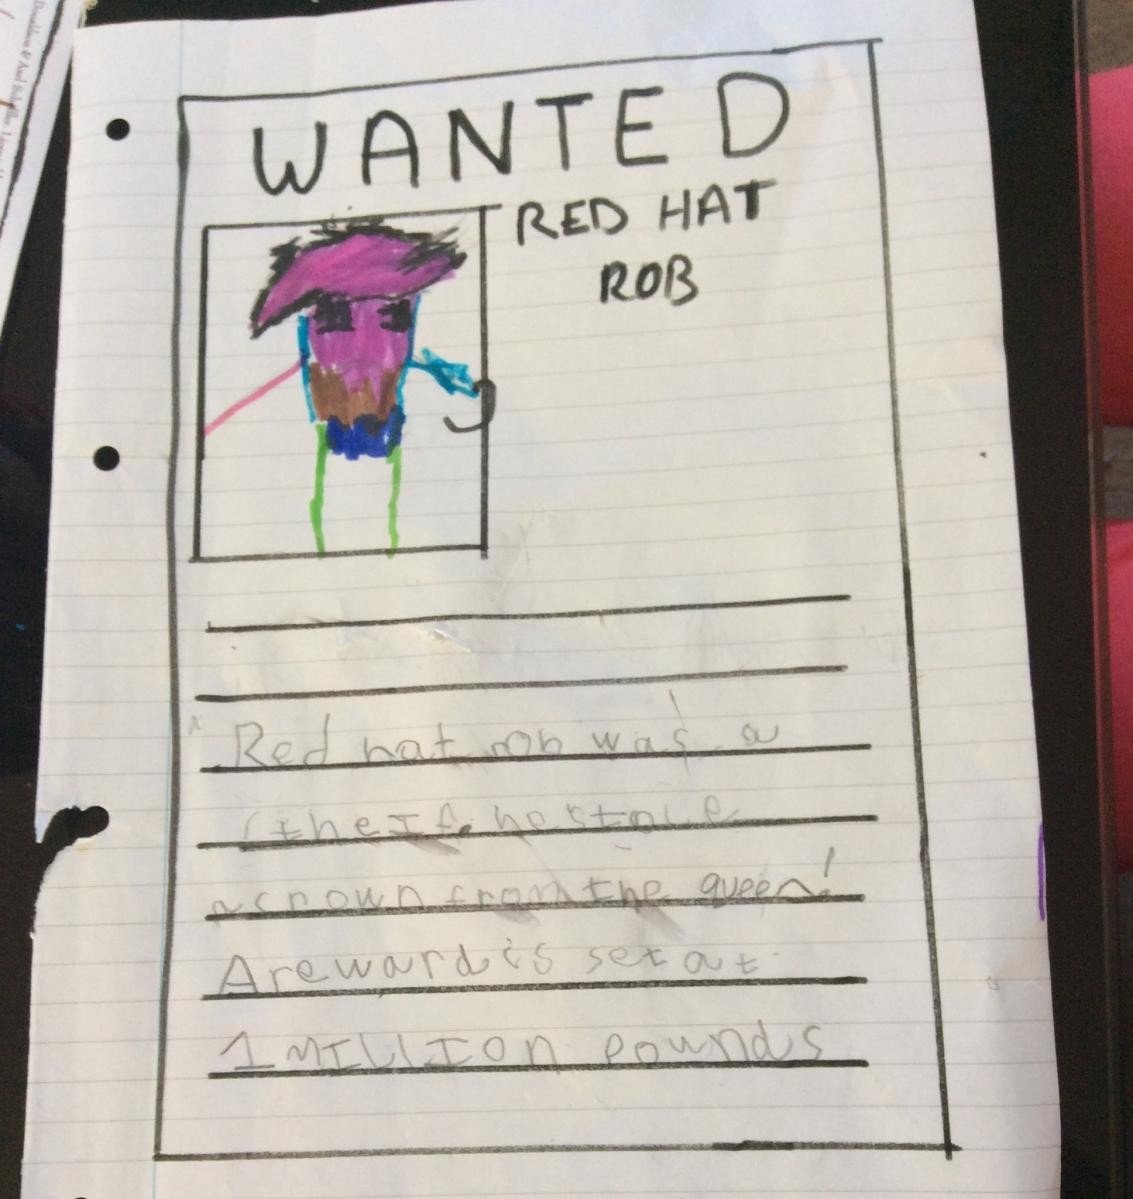 WANTED
RED HAT
ROB
Red hat rob was a
theif. he stole
a crown from the queen!
A reward is set at
1 MILLION pounds